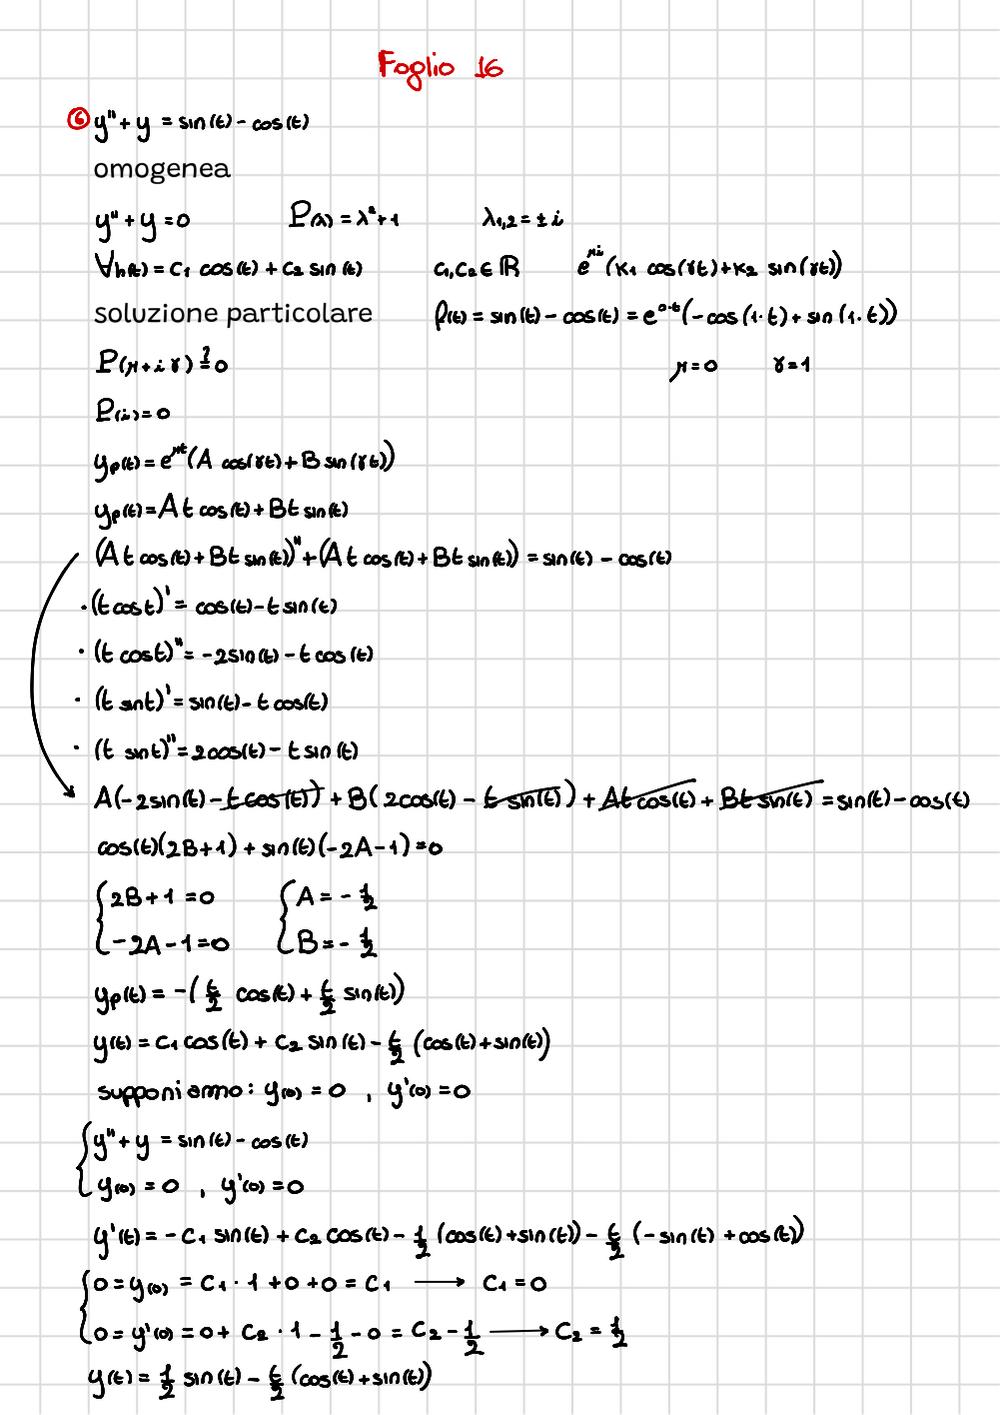 Foglio 16
⑥ y" + y = sin(t) - cos(t)
omogenea
y" + y = 0 P(λ) = λ² + 1 λ1,2 = ± i
Vh(t) = C1 cos(t) + C2 sin(t) C1, C2 ∈ ℝ e^μt (K1 cos(γt) + K2 sin(γt))
soluzione particolare f(t) = sin(t) - cos(t) = e^0·t (-cos(1·t) + sin(1·t))
P(μ + iγ) ≟ 0 μ = 0 γ = 1
P(i) = 0
yp(t) = e^μt (A cos(γt) + B sin(γt))
yp(t) = A t cos(t) + B t sin(t)
(A t cos(t) + B t sin(t))" + (A t cos(t) + B t sin(t)) = sin(t) - cos(t)
· (t cos t)' = cos(t) - t sin(t)
· (t cos t)" = -2 sin(t) - t cos(t)
· (t sin t)' = sin(t) - t cos(t)
· (t sin t)" = 2 cos(t) - t sin(t)
A(-2 sin(t) - t cos(t)) + B(2 cos(t) - t sin(t)) + A t cos(t) + B t sin(t) = sin(t) - cos(t)
cos(t)(2B + 1) + sin(t)(-2A - 1) = 0
{ 2B + 1 = 0 { A = - 1/2
-2A - 1 = 0 B = - 1/2
yp(t) = -( t/2 cos(t) + t/2 sin(t))
y(t) = C1 cos(t) + C2 sin(t) - t/2 (cos(t) + sin(t))
supponiamo: y(0) = 0 , y'(0) = 0
{ y" + y = sin(t) - cos(t)
y(0) = 0 , y'(0) = 0
y'(t) = - C1 sin(t) + C2 cos(t) - 1/2 (cos(t) + sin(t)) - t/2 (-sin(t) + cos(t))
{ 0 = y(0) = C1 · 1 + 0 + 0 = C1 → C1 = 0
0 = y'(0) = 0 + C2 · 1 - 1/2 - 0 = C2 - 1/2 → C2 = 1/2
y(t) = 1/2 sin(t) - t/2 (cos(t) + sin(t))